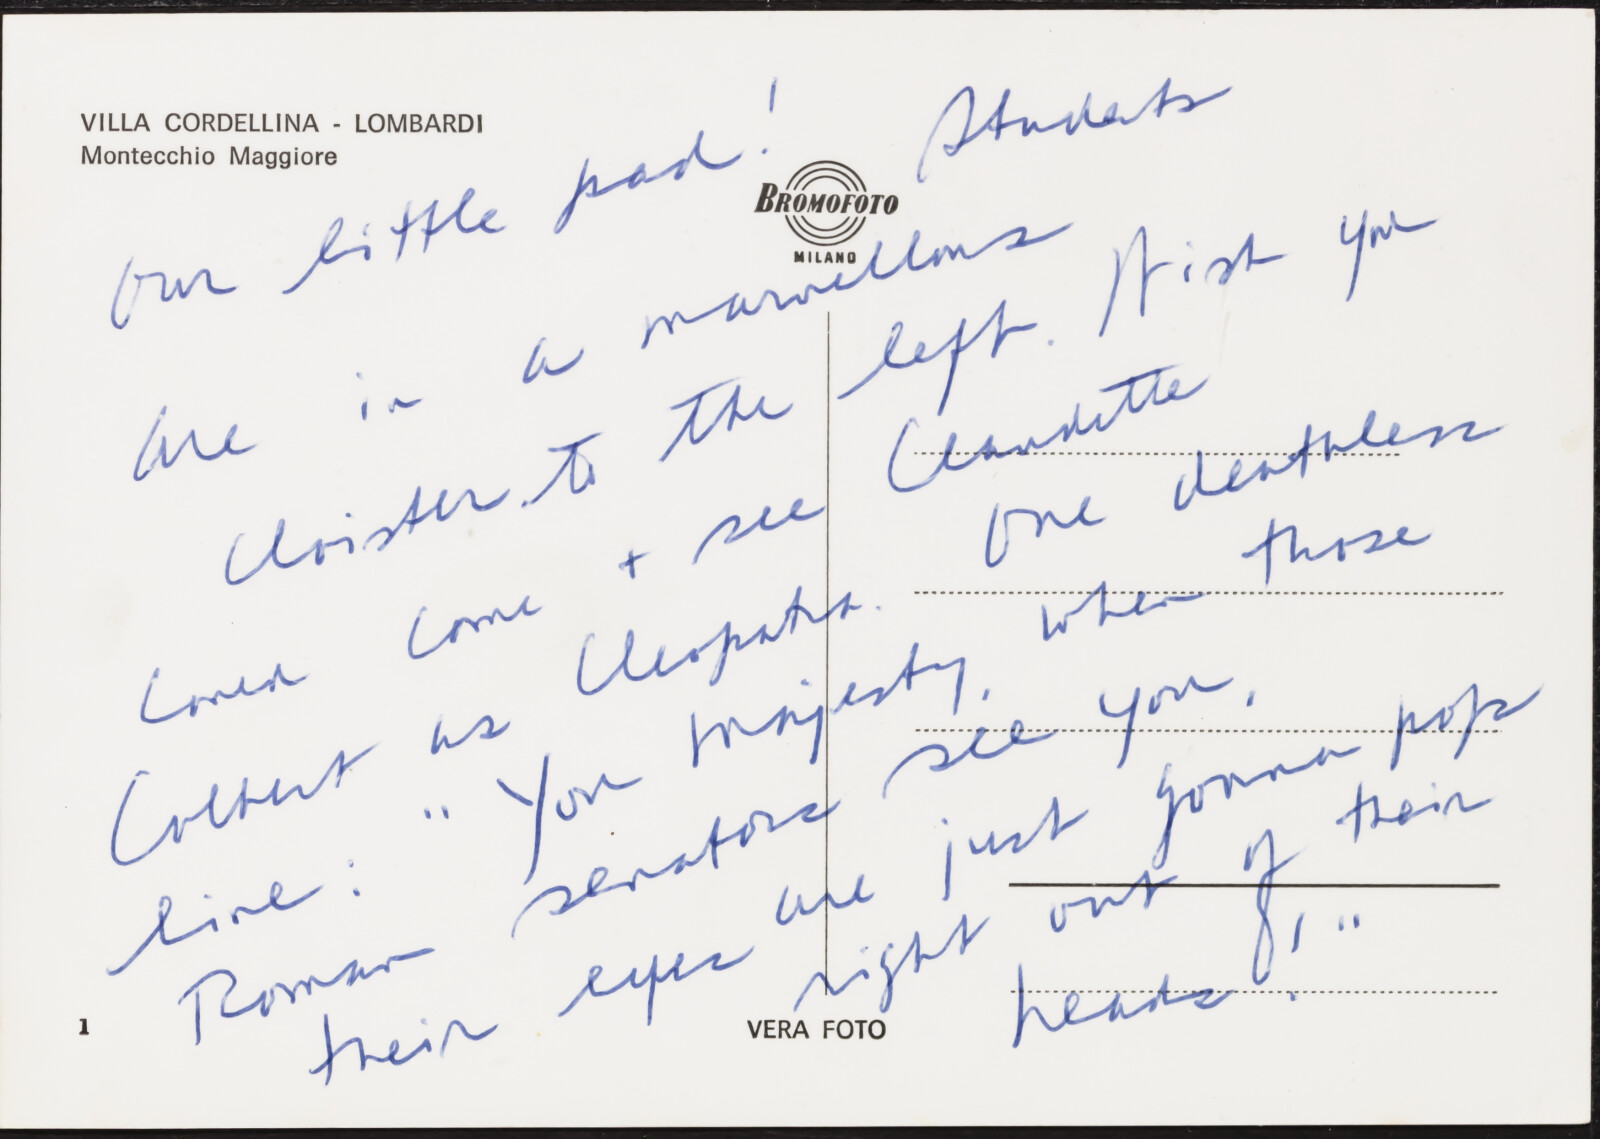 VILLA CORDELLINA - LOMBARDI
Montecchio Maggiore
BROMOFOTO
MILANO
Our little pad! Students
are in a marvellous
cloister to the left. Wish you
could come + see Claudette
Colbert as Cleopatra. One deathless
line: "You majesty, when those
Roman senators see you,
their eyes are just gonna pop
right out of their
heads!"
1
VERA FOTO